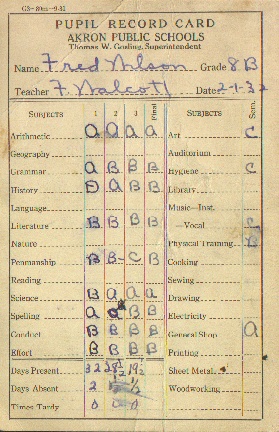 G3-80m-9-31
PUPIL RECORD CARD
AKRON PUBLIC SCHOOLS
Thomas W. Gosling, Superintendent
Name Fred Wilson Grade 8B
Teacher F Walcott Date 2-1-32
SUBJECTS 1 2 3 Final SUBJECTS Sem.
Arithmetic a a a a Art C
Geography Auditorium
Grammar a B B B Hygiene C
History B a B B Library
Language Music—Inst.
Literature B B B B —Vocal C
Nature Physical Training B
Penmanship B B- C B Cooking
Reading Sewing
Science B a a a Drawing
Spelling a B B Electricity
Conduct B B B B General Shop a
Effort B B B B Printing
Days Present 32 28½ 19½ Sheet Metal
Days Absent 2 ½ Woodworking
Times Tardy 0 0 0